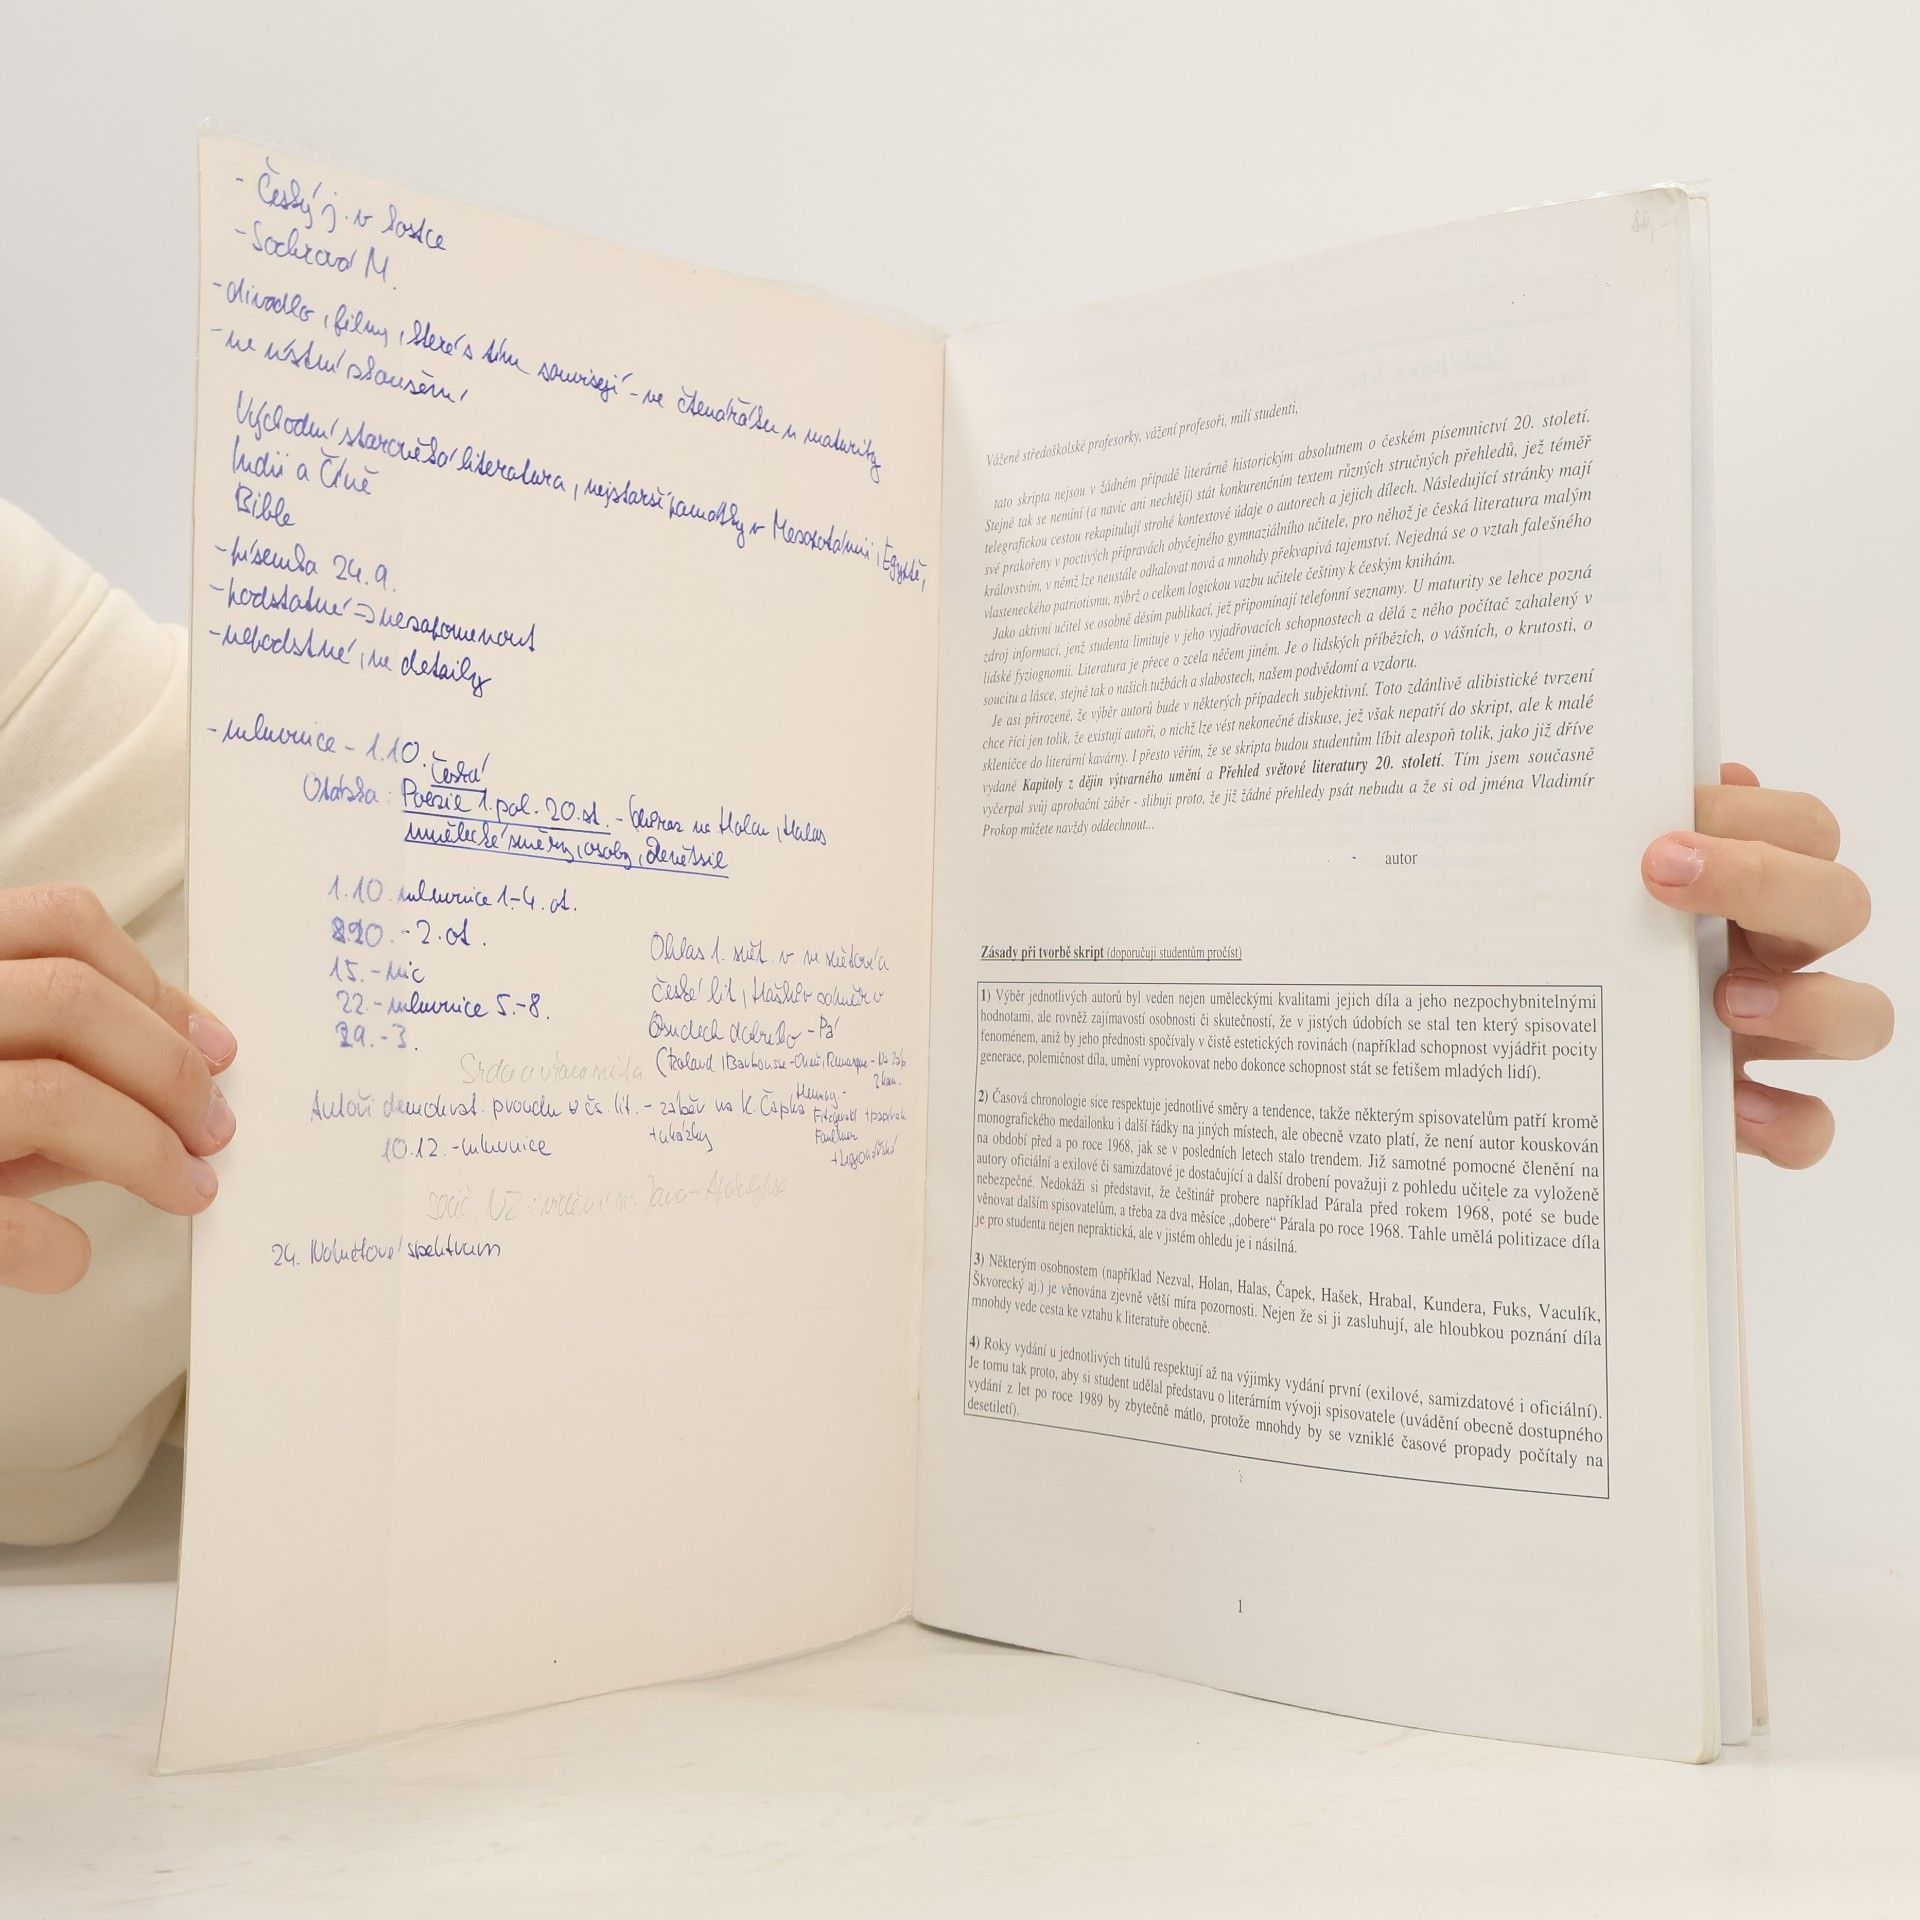 - Český j. v kostce
- Sochrová M.
- divadlo, filmy, které s tím souvisejí - ve čtenářáku u maturity
- ne ústní zkoušení
Východní starověká literatura, nejstarší památky v Mezopotámii, Egyptě,
Indii a Číně
Bible
- písemka 24.9.
- podstatné => nezapomenout
- nepodstné, ne detaily
- mluvnice - 1.10.
česká
Otázka: Poezie 1. pol. 20. st. - důraz na Holan, Halas
umělecké směry, osoby, Devětsil
1.10. mluvnice 1-4. ot.
- 2. ot.
15. - nic
22. - mluvnice 5.-8.
29. - 3.
Ohlas 1. svět. v. ve světové a
české lit, Haškův
Osudech dobrého - Pá
Autoři demokrat. proudu v čs. lit. - záběr na K. Čapka
+ ukázky
Heming-
Fitzgerald
Faulkner
10.12. - mluvnice
24. spektrum
Vážené středoškolské profesorky, vážení profesoři, milí studenti,
tato skripta nejsou v žádném případě literárně historickým absolutnem o českém písemnictví 20. století.
Stejně tak se nemíní (a navíc ani nechtějí) stát konkurenčním textem různých stručných přehledů, jež téměř
telegrafickou cestou rekapitulují strohé kontextové údaje o autorech a jejich dílech. Následující stránky mají
své prakořeny v poctivých přípravách obyčejného gymnaziálního učitele, pro něhož je česká literatura malým
královstvím, v němž lze neustále odhalovat nová a mnohdy překvapivá tajemství. Nejedná se o vztah falešného
vlasteneckého patriotismu, nýbrž o celkem logickou vazbu učitele češtiny k českým knihám.
Jako aktivní učitel se osobně děsím publikací, jež připomínají telefonní seznamy. U maturity se lehce pozná
zdroj informací, jenž studenta limituje v jeho vyjadřovacích schopnostech a dělá z něho počítač zahalený v
lidské fyziognomii. Literatura je přece o zcela něčem jiném. Je o lidských příbězích, o vášních, o krutosti, o
soucitu a lásce, stejně tak o našich tužbách a slabostech, našem podvědomí a vzdoru.
Je asi přirozené, že výběr autorů bude v některých případech subjektivní. Toto zdánlivě alibistické tvrzení
chce říci jen tolik, že existují autoři, o nichž lze vést nekonečné diskuse, jež však nepatří do skript, ale k malé
skleničce do literární kavárny. I přesto věřím, že se skripta budou studentům líbit alespoň tolik, jako již dříve
vydané Kapitoly z dějin výtvarného umění a Přehled světové literatury 20. století. Tím jsem současně
vyčerpal svůj aprobační záběr - slibuji proto, že již žádné přehledy psát nebudu a že si od jména Vladimír
Prokop můžete navždy oddechnout...
- autor
Zásady při tvorbě skript (doporučuji studentům pročíst)
1) Výběr jednotlivých autorů byl veden nejen uměleckými kvalitami jejich díla a jeho nezpochybnitelnými
hodnotami, ale rovněž zajímavostí osobnosti či skutečností, že v jistých údobích se stal ten který spisovatel
fenoménem, aniž by jeho přednosti spočívaly v čistě estetických rovinách (například schopnost vyjádřit pocity
generace, polemičnost díla, umění vyprovokovat nebo dokonce schopnost stát se fetišem mladých lidí).
2) Časová chronologie sice respektuje jednotlivé směry a tendence, takže některým spisovatelům patří kromě
monografického medailonku i další řádky na jiných místech, ale obecně vzato platí, že není autor kouskován
na období před a po roce 1968, jak se v posledních letech stalo trendem. Již samotné pomocné členění na
autory oficiální a exilové či samizdatové je dostačující a další drobení považuji z pohledu učitele za vyloženě
nebezpečné. Nedokáži si představit, že češtinář probere například Párala před rokem 1968, poté se bude
věnovat dalším spisovatelům, a třeba za dva měsíce „dobere“ Párala po roce 1968. Tahle umělá politizace díla
je pro studenta nejen nepraktická, ale v jistém ohledu je i násilná.
3) Některým osobnostem (například Nezval, Holan, Halas, Čapek, Hašek, Hrabal, Kundera, Fuks, Vaculík,
Škvorecký aj.) je věnována zjevně větší míra pozornosti. Nejen že si ji zasluhují, ale hloubkou poznání díla
mnohdy vede cesta ke vztahu k literatuře obecně.
4) Roky vydání u jednotlivých titulů respektují až na výjimky vydání první (exilové, samizdatové i oficiální).
Je tomu tak proto, aby si student udělal představu o literárním vývoji spisovatele (uvádění obecně dostupného
vydání z let po roce 1989 by zbytečně mátlo, protože mnohdy by se vzniklé časové propady počítaly na
desetiletí).
1